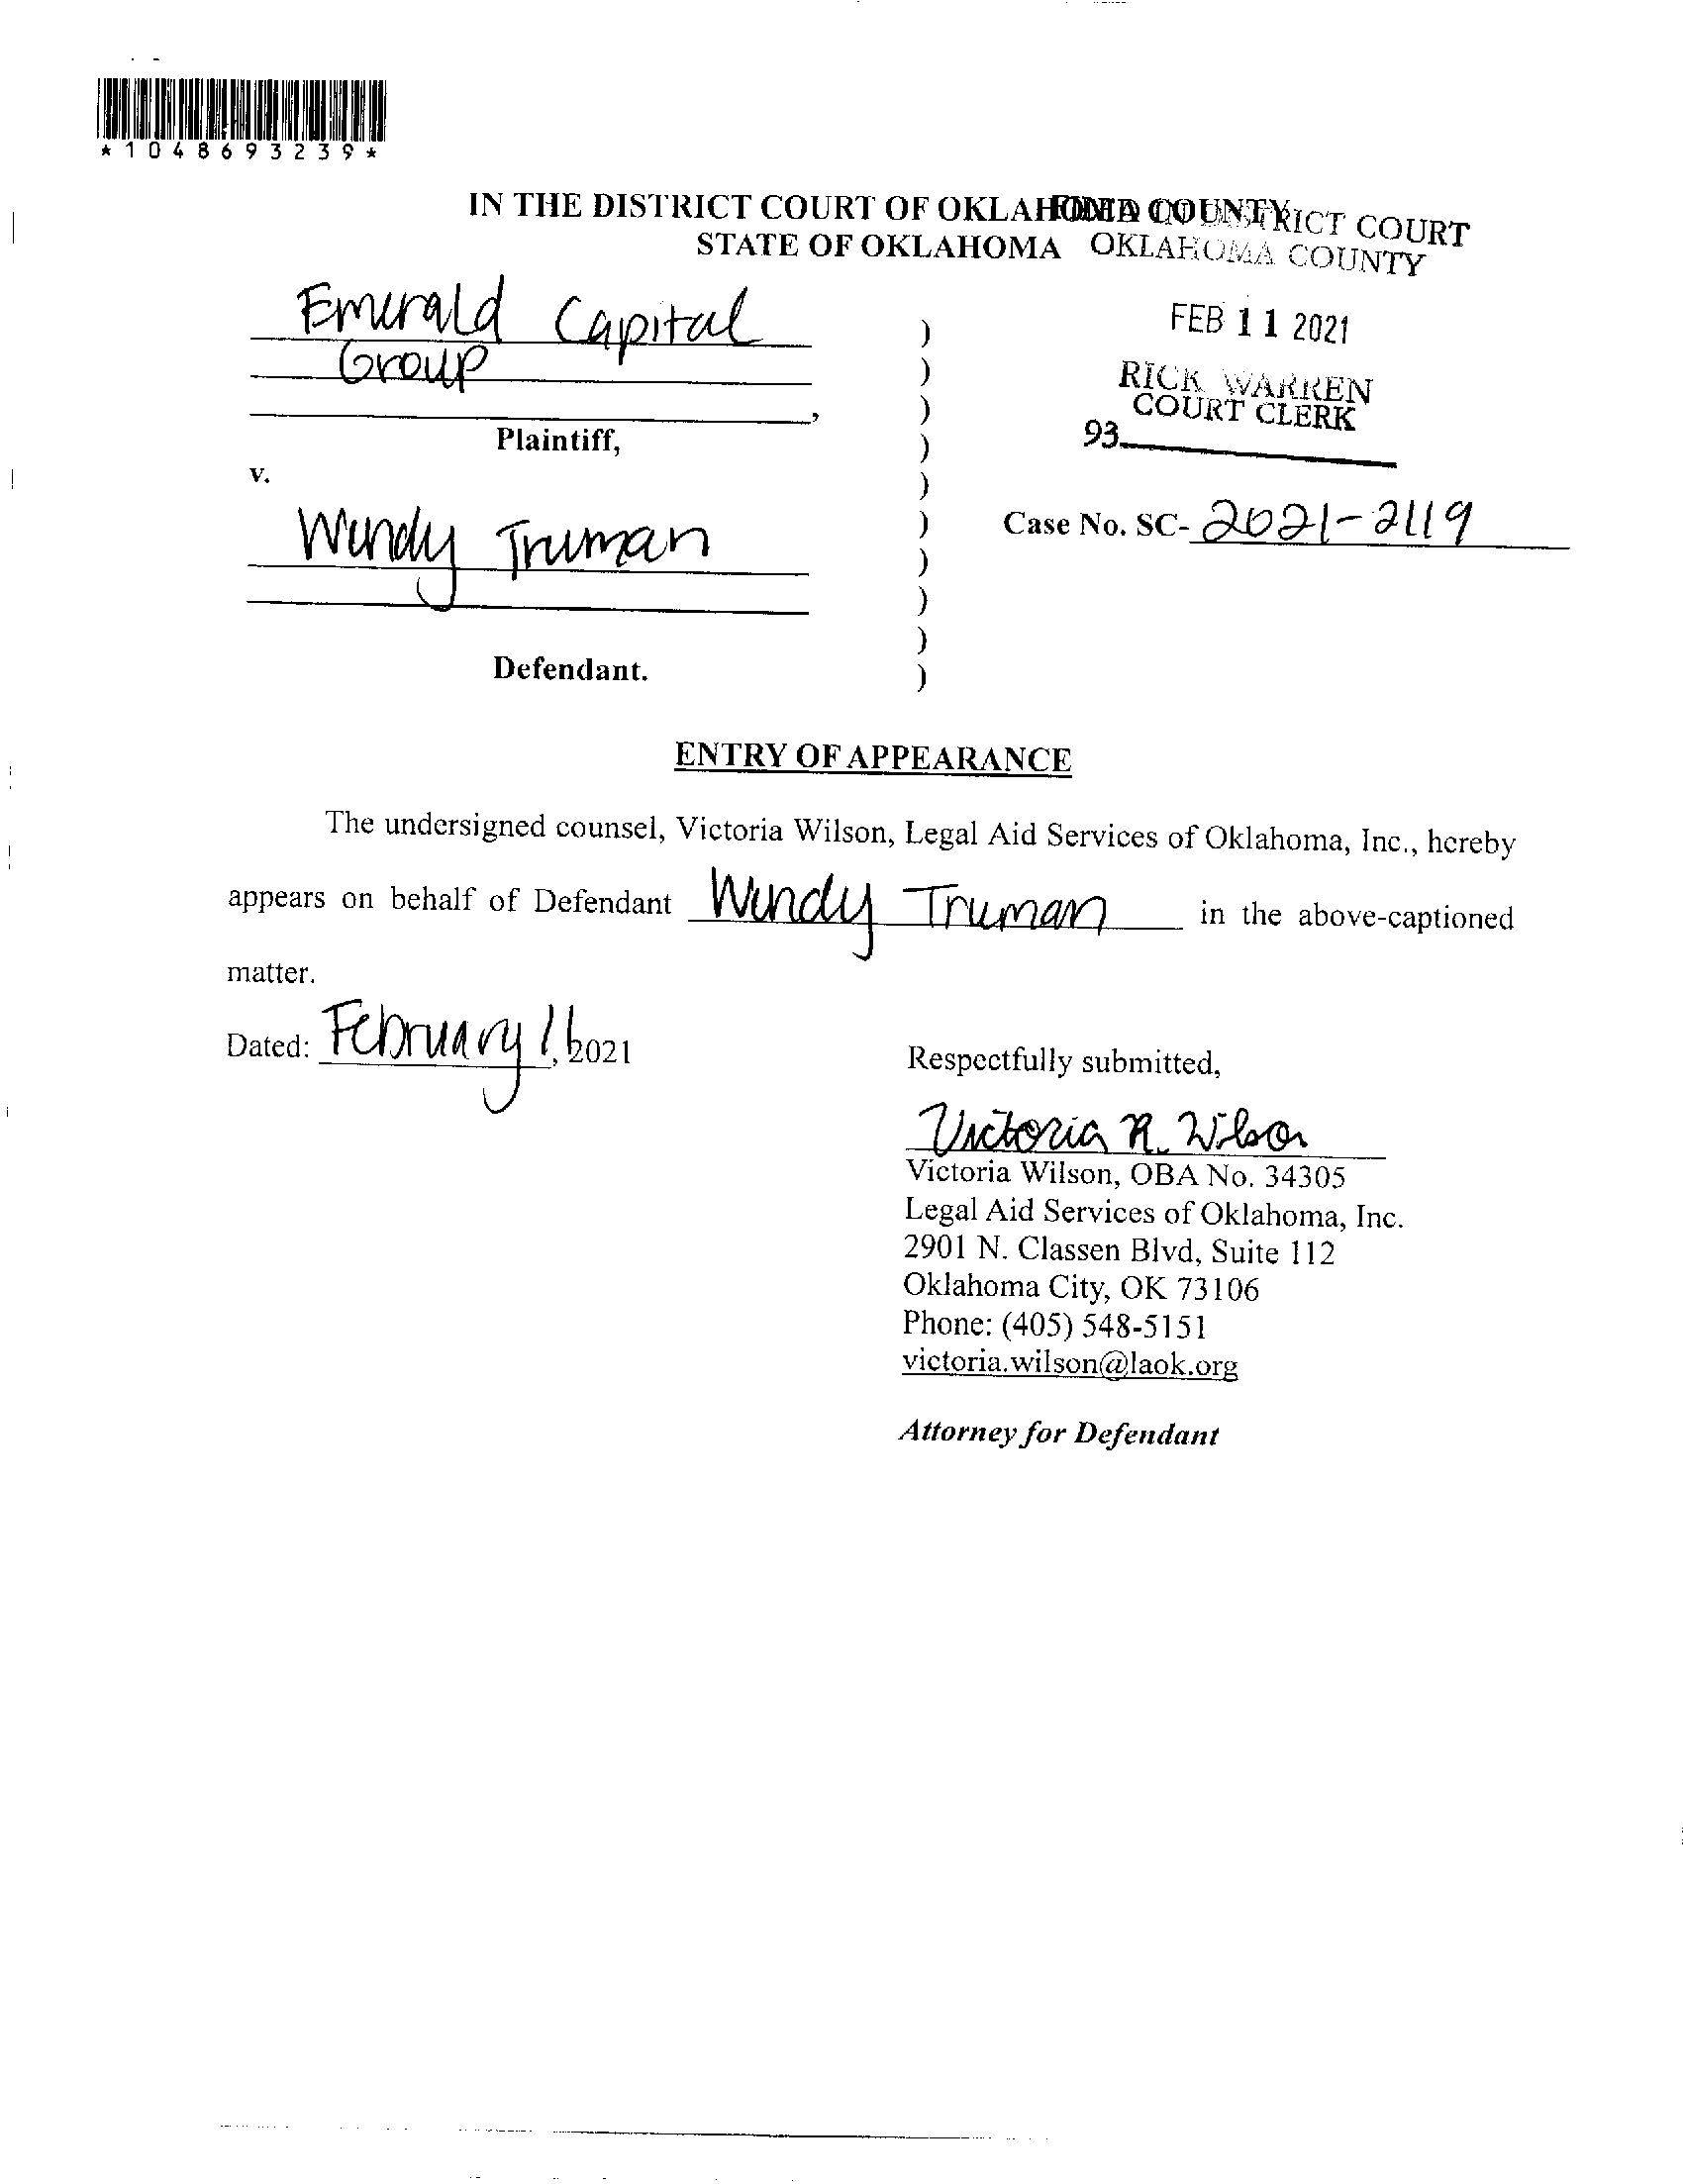 *1048693239*
IN THE DISTRICT COURT OF OKLAHOMA COUNTY
STATE OF OKLAHOMA
FILED IN DISTRICT COURT
OKLAHOMA COUNTY
FEB 11 2021
RICK WARREN
COURT CLERK
93
Emerald Capital
Group
,
Plaintiff,
v.
Wendy Truman
Defendant.
)
)
)
)
)
)
)
)
)
)
Case No. SC- 2021-2119
ENTRY OF APPEARANCE
The undersigned counsel, Victoria Wilson, Legal Aid Services of Oklahoma, Inc., hereby
appears on behalf of Defendant Wendy Truman in the above-captioned
matter.
Dated: February , 2021
Respectfully submitted,
Victoria R. Wilson
Victoria Wilson, OBA No. 34305
Legal Aid Services of Oklahoma, Inc.
2901 N. Classen Blvd, Suite 112
Oklahoma City, OK 73106
Phone: (405) 548-5151
victoria.wilson@laok.org
Attorney for Defendant